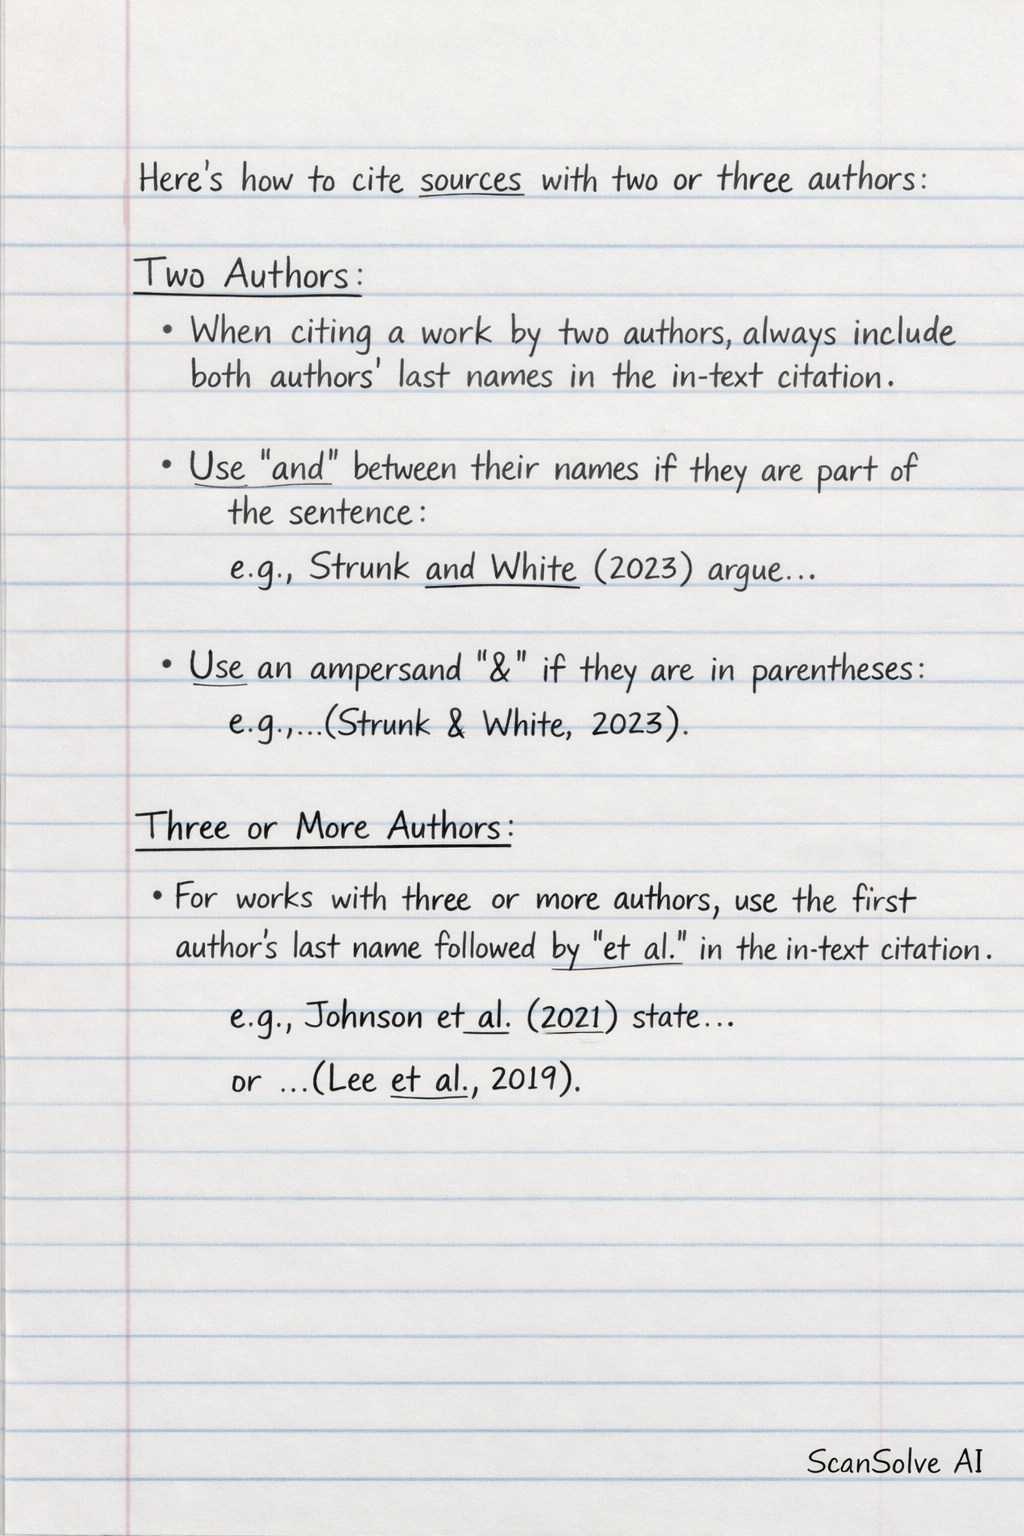 Here's how to cite sources with two or three authors:
Two Authors:
• When citing a work by two authors, always include
both authors' last names in the in-text citation.
• Use "and" between their names if they are part of
the sentence:
e.g., Strunk and White (2023) argue...
• Use an ampersand "&" if they are in parentheses:
e.g.,...(Strunk & White, 2023).
Three or More Authors:
• For works with three or more authors, use the first
author's last name followed by "et al." in the in-text citation.
e.g., Johnson et al. (2021) state...
or ...(Lee et al., 2019).
ScanSolve AI